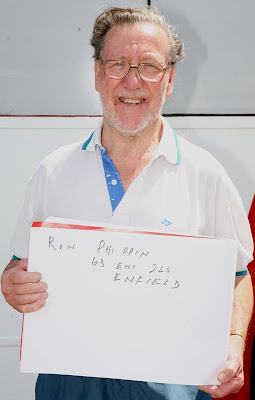 RON PHIPPIN
63 ENI 229
ENFIELD